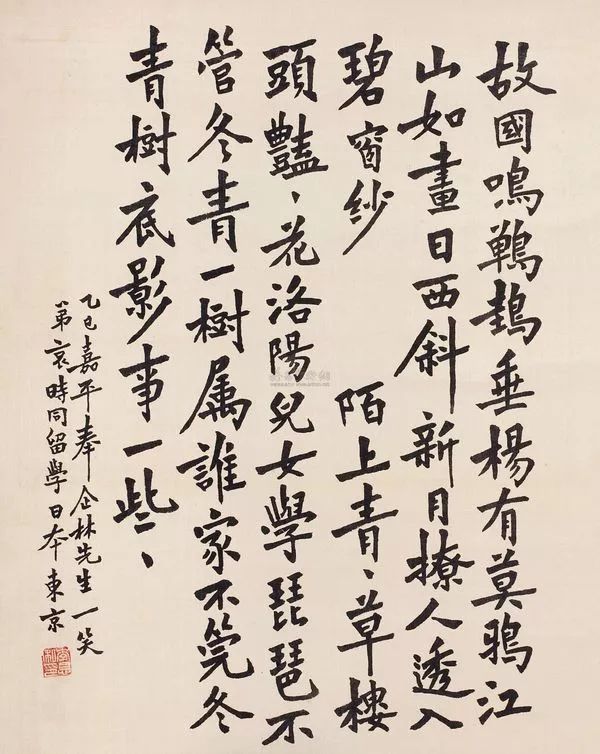 故國鳴鷤垂楊有莫鴉江
山如畫日西斜新月撩人透入
碧窗紗 陌上青、草樓
頭豔、花洛陽兒女學琵琶不
管冬青一樹属誰家不筦冬
青樹底影事一些、
乙巳嘉平奉 企林先生一笑
弟哀時同留學日本東京